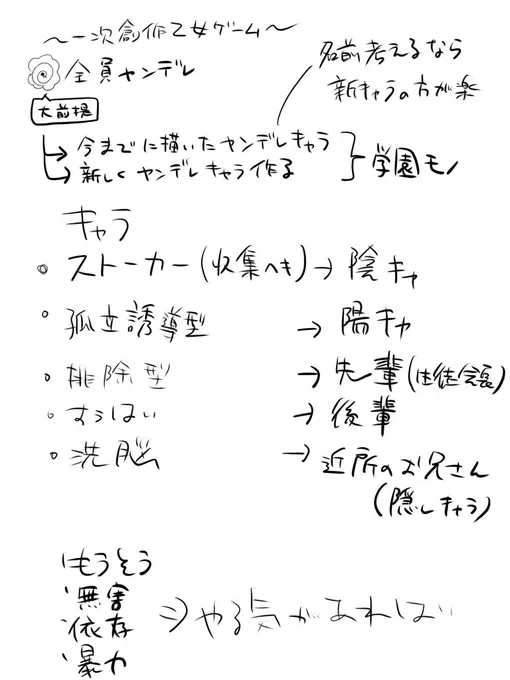 ～一次創作乙女ゲーム～
全員ヤンデレ
大前提
名前考えるなら
新キャラの方が楽
→今までに描いたヤンデレキャラ
→新しくヤンデレキャラ作る
学園モノ
キャラ
・ストーカー(収集へき)→陰キャ
・孤立誘導型→陽キャ
・排除型→先輩(生徒会長)
・すうはい→後輩
・洗脳→近所のお兄さん
(隠しキャラ)
もうそう
無害
依存
暴力
⇒やる気があれば